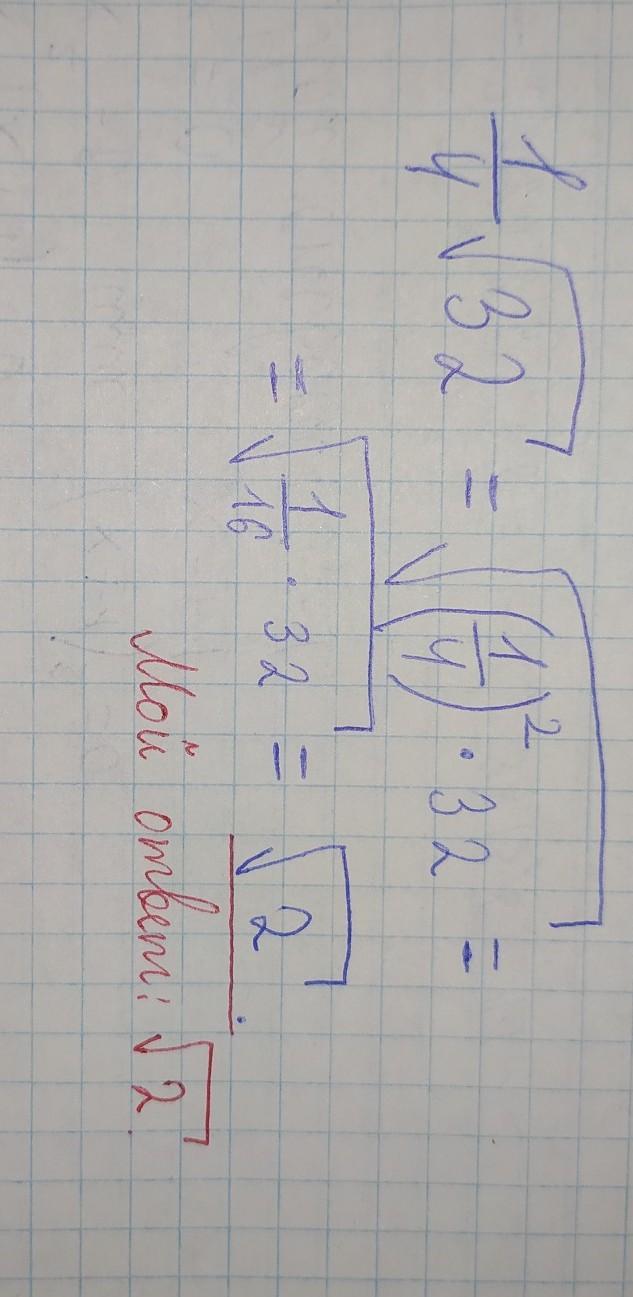 1/4 √32 = √(1/4)² · 32 =
= √1/16 · 32 = √2.
Мой ответ: √2.